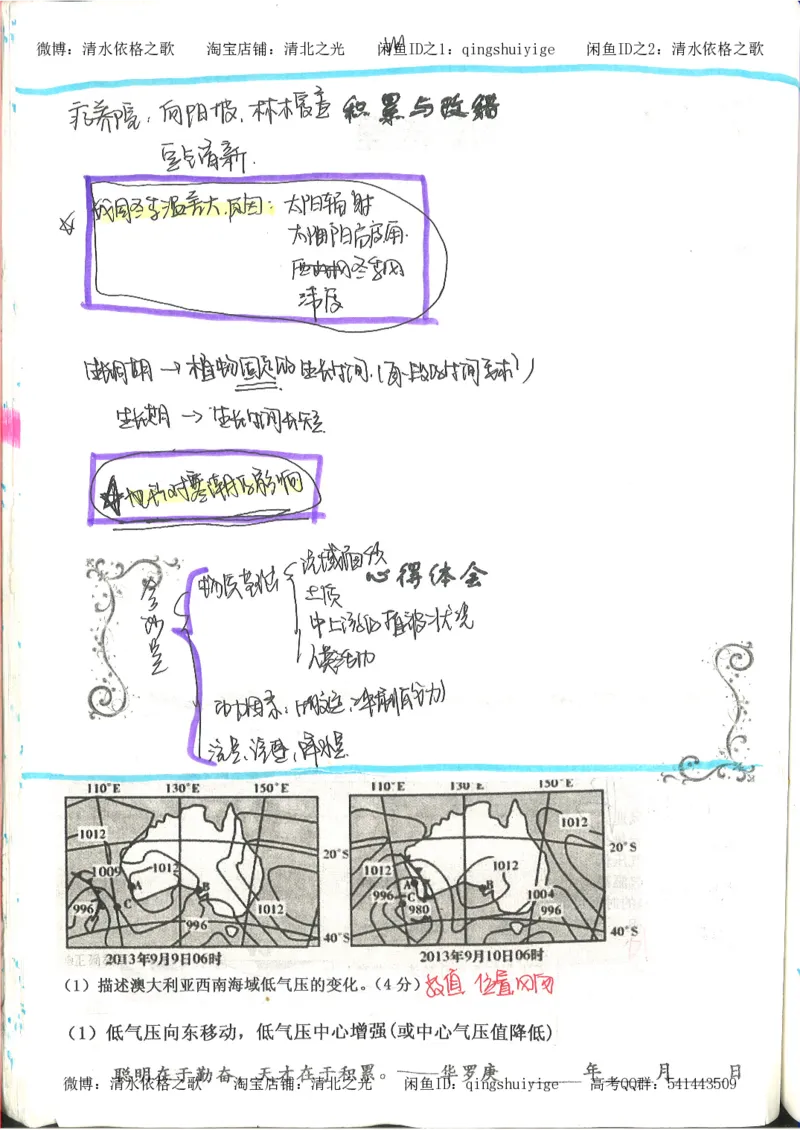 微博：清水依格之歌 淘宝店铺：清北之光 闲鱼ID之1：qingshuiyige 闲鱼ID之2：清水依格之歌
疗养院：向阳坡、林木覆盖 积累与改错
空气清新.
我国冬季温差大.原因：太阳辐射
太阳高度角.
冬季风
纬度
生长周期→植物固定的生长时间.
生长期→生长时间长短
地形对寒潮的影响
心得体会
含沙量
物质基础
流域面积
土质
中上流的植被状况
人类活动
动力因素：
流量、流速、降水量
110°E 130°E 150°E
1012
1009
1012
996
A
B
C
1012
996
20°S
40°S
2013年9月9日06时
110°E 130°E 150°E
1012
1012
1012
996
A
B
C
980
1004
996
20°S
40°S
2013年9月10日06时
（1）描述澳大利亚西南海域低气压的变化。（4分）数值 位置
（1）低气压向东移动，低气压中心增强(或中心气压值降低)
聪明在于勤奋，天才在于积累。——华罗庚 年 月 日
微博：清水依格之歌 淘宝店铺：清北之光 闲鱼ID：qingshuiyige 高考QQ群：541443509